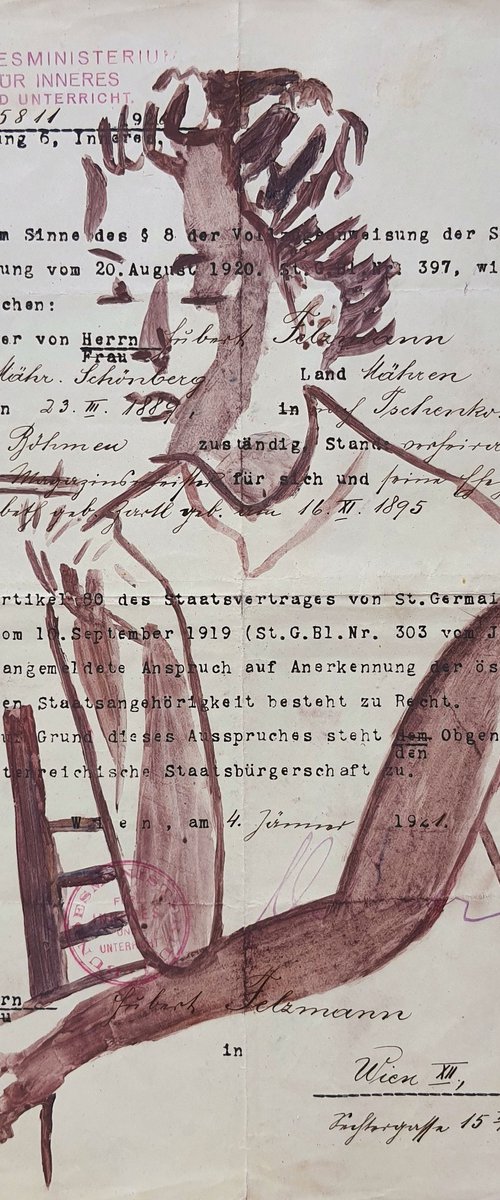 ESMINISTERIUM
ÜR INNERES
D UNTERRICHT.
5811
ung 6, Inneres,
m Sinne des § 8 der Vollzugsanweisung der S
ung vom 20.August 1920. St.G.Bl.Nr. 397, wi
chen:
er von Herrn Hubert Felzmann
Frau
Mähr. Schönberg Land Mähren
n 23. III. 1889, in nach Tschenko
Böhmen zuständig, Stand verheira
Magazinsmeister für sich und seine Ehe
beth geb. Hartl geb. am 16. XI. 1895
rtikel 80 des Staatsvertrages von St.Germai
om 10.September 1919 (St.G.Bl.Nr. 303 vom J
angemeldete Anspruch auf Anerkennung der ös
en Staatsangehörigkeit besteht zu Recht.
uf Grund dieses Ausspruches steht dem Obgen
den
terreichische Staatsbürgerschaft zu.
Wien, am 4. Jänner 1921.
UNTERRICHT
rn Hubert Felzmann
u
in
Wien XII.,
Sechtergasse 15